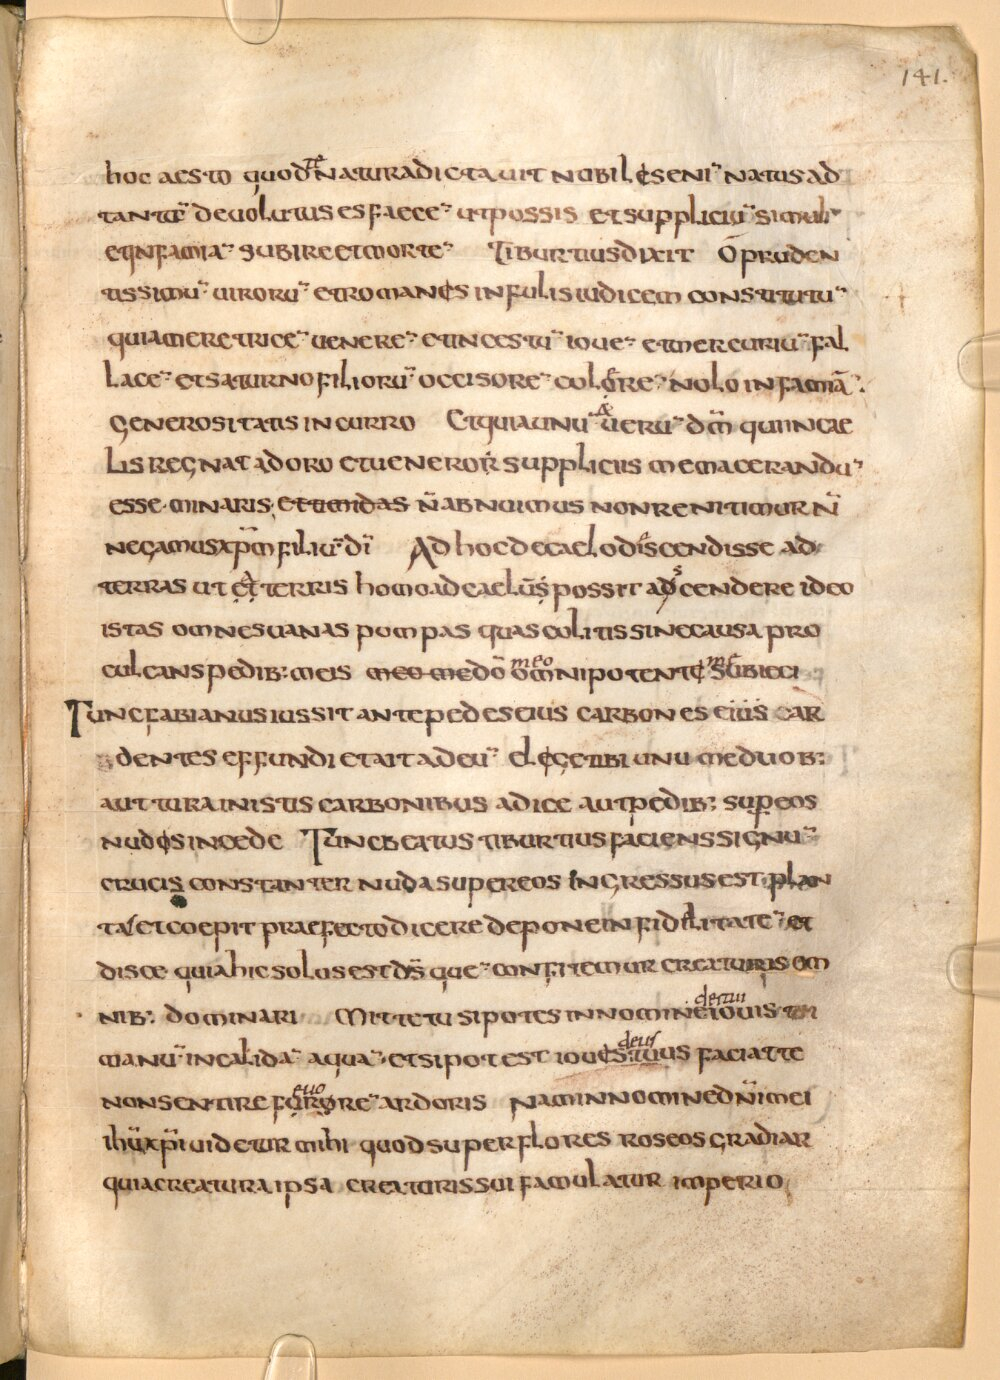 141.
hoc aesto quod te natura dictavit nobiles eni̅ natus ad
tantu̅ devolutus es faece̅ ut possis et suppliciu̅ simul
et infamia̅ subire et morte̅ Tiburtius dixit O pruden
tissimu̅ viroru̅ et romanes infulis iudicem constitutu̅
quia meretrice̅ venere̅ et incestu̅ iove̅ et mercuriu̅ fal
lace̅ et saturno filioru̅ occisore̅ colere̅ nolo infamia̅
generositatis incurro Et quia unu̅ & veru̅ dm̅ qui in cae
lis regnat adoro et veneror suppliciis me macerandu̅
esse minaris et temdas n̅ abnuimus non renitimur n̅
negamus xp̅m filiu̅ di̅ Ad hoc de caelo discendisse ad
terras ut et a terris homo ad caelu̅s possit adscendere ideo
istas omnes vanas pompas quas colitis sine causa pro
culcans pedib: meis meo medo̅ meo omnipotente me subieci
Tunc fabianus iussit ante pedes eius carbones eius ar
dentes effundi et ait ad eu̅ elige tibi unu me duob:
aut tura in istis carbonibus adice aut pedib: sup eos
nudis incede Tunc beatus tiburtius faciens signu̅
crucis constanter nuda super eos ingressus est plan
ta et coepit praefecto dicere depone infidelitate̅ et
disce quia hic solus est ds̅ que̅ confitemur creaturis om
nib: dominari Mitte tu si potes in nomine dei tui iovis
manu̅ in calida̅ aqua̅ et si potest ioves deus tuus faciat te
non sentire furore̅ suo ardoris nam in nomine dn̅i mei
ihu̅ xp̅i videtur mihi quod super flores roseos gradiar
quia creatura ipsa creaturis sui famulatur imperio